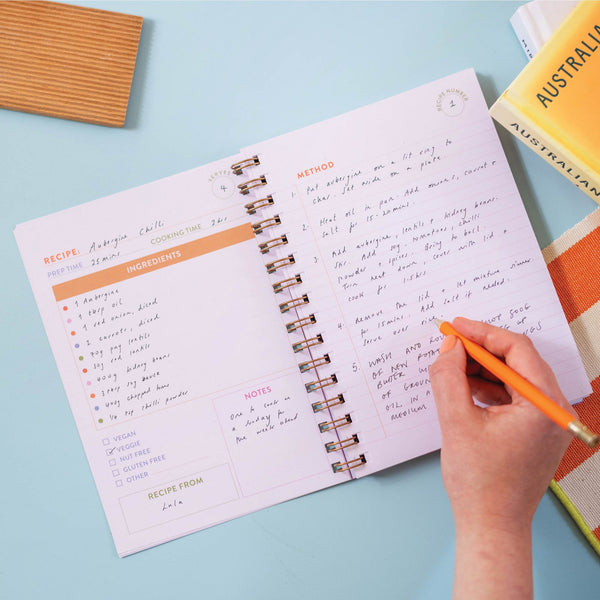 SERVES
4
RECIPE: Aubergine Chilli
PREP TIME 25 mins COOKING TIME 2 hrs
INGREDIENTS
1 Aubergine
1 tbsp oil
1 red onion, diced
2 carrots, diced
70g puy lentils
30g red lentils
400g kidney beans
3 tbsp soy sauce
400g chopped toms
1/4 tsp chilli powder
VEGAN
VEGGIE
NUT FREE
GLUTEN FREE
OTHER
RECIPE FROM
Lala
NOTES
One to cook on
a Sunday for
the week ahead
RECIPE NUMBER
1
METHOD
Put aubergine on a lit ring to
char. Set aside on a plate.
2. Heat oil in pan. Add onions, carrot +
salt for 15-20mins.
3. Add aubergine, lentils + kidney beans.
Stir. Add soy, tomatoes, chilli
powder + spices. Bring to boil.
Turn heat down, cover with lid +
cook for 1.5hrs
4. Remove the lid + let mixture simmer
for 15mins. Add salt if needed.
Serve over rice.
5. WASH AND NOT 500G
OF NEW
BUTTER
OF GROUN
OIL IN A
MEDIUM
AUSTRALIAN
AUSTRALIAN